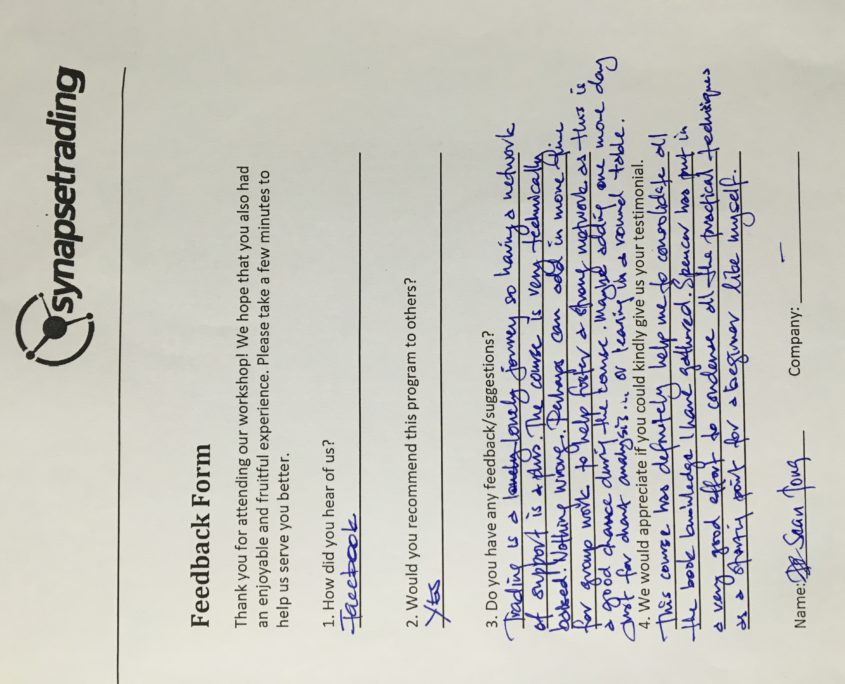 synapsetrading
Feedback Form
Thank you for attending our workshop! We hope that you also had
an enjoyable and fruitful experience. Please take a few minutes to
help us serve you better.
1. How did you hear of us?
Facebook
2. Would you recommend this program to others?
Yes
3. Do you have any feedback/suggestions?
Trading is a lonely journey so having a network
of support is a plus. The course is very technically
based. Nothing wrong. Perhaps can add in more time
for group work to help foster a strong network as this is
a good chance during the course. Maybe adding one more day
just for chart analysis... or learing in a round table.
4. We would appreciate if you could kindly give us your testimonial.
This course has definitely help me to consolidate all
the book knowledge I have gathered. Spencer has put in
a very good effort to condense all the practical techniques
as a starting point for a beginner like myself.
Name: Sean Tong Company: –